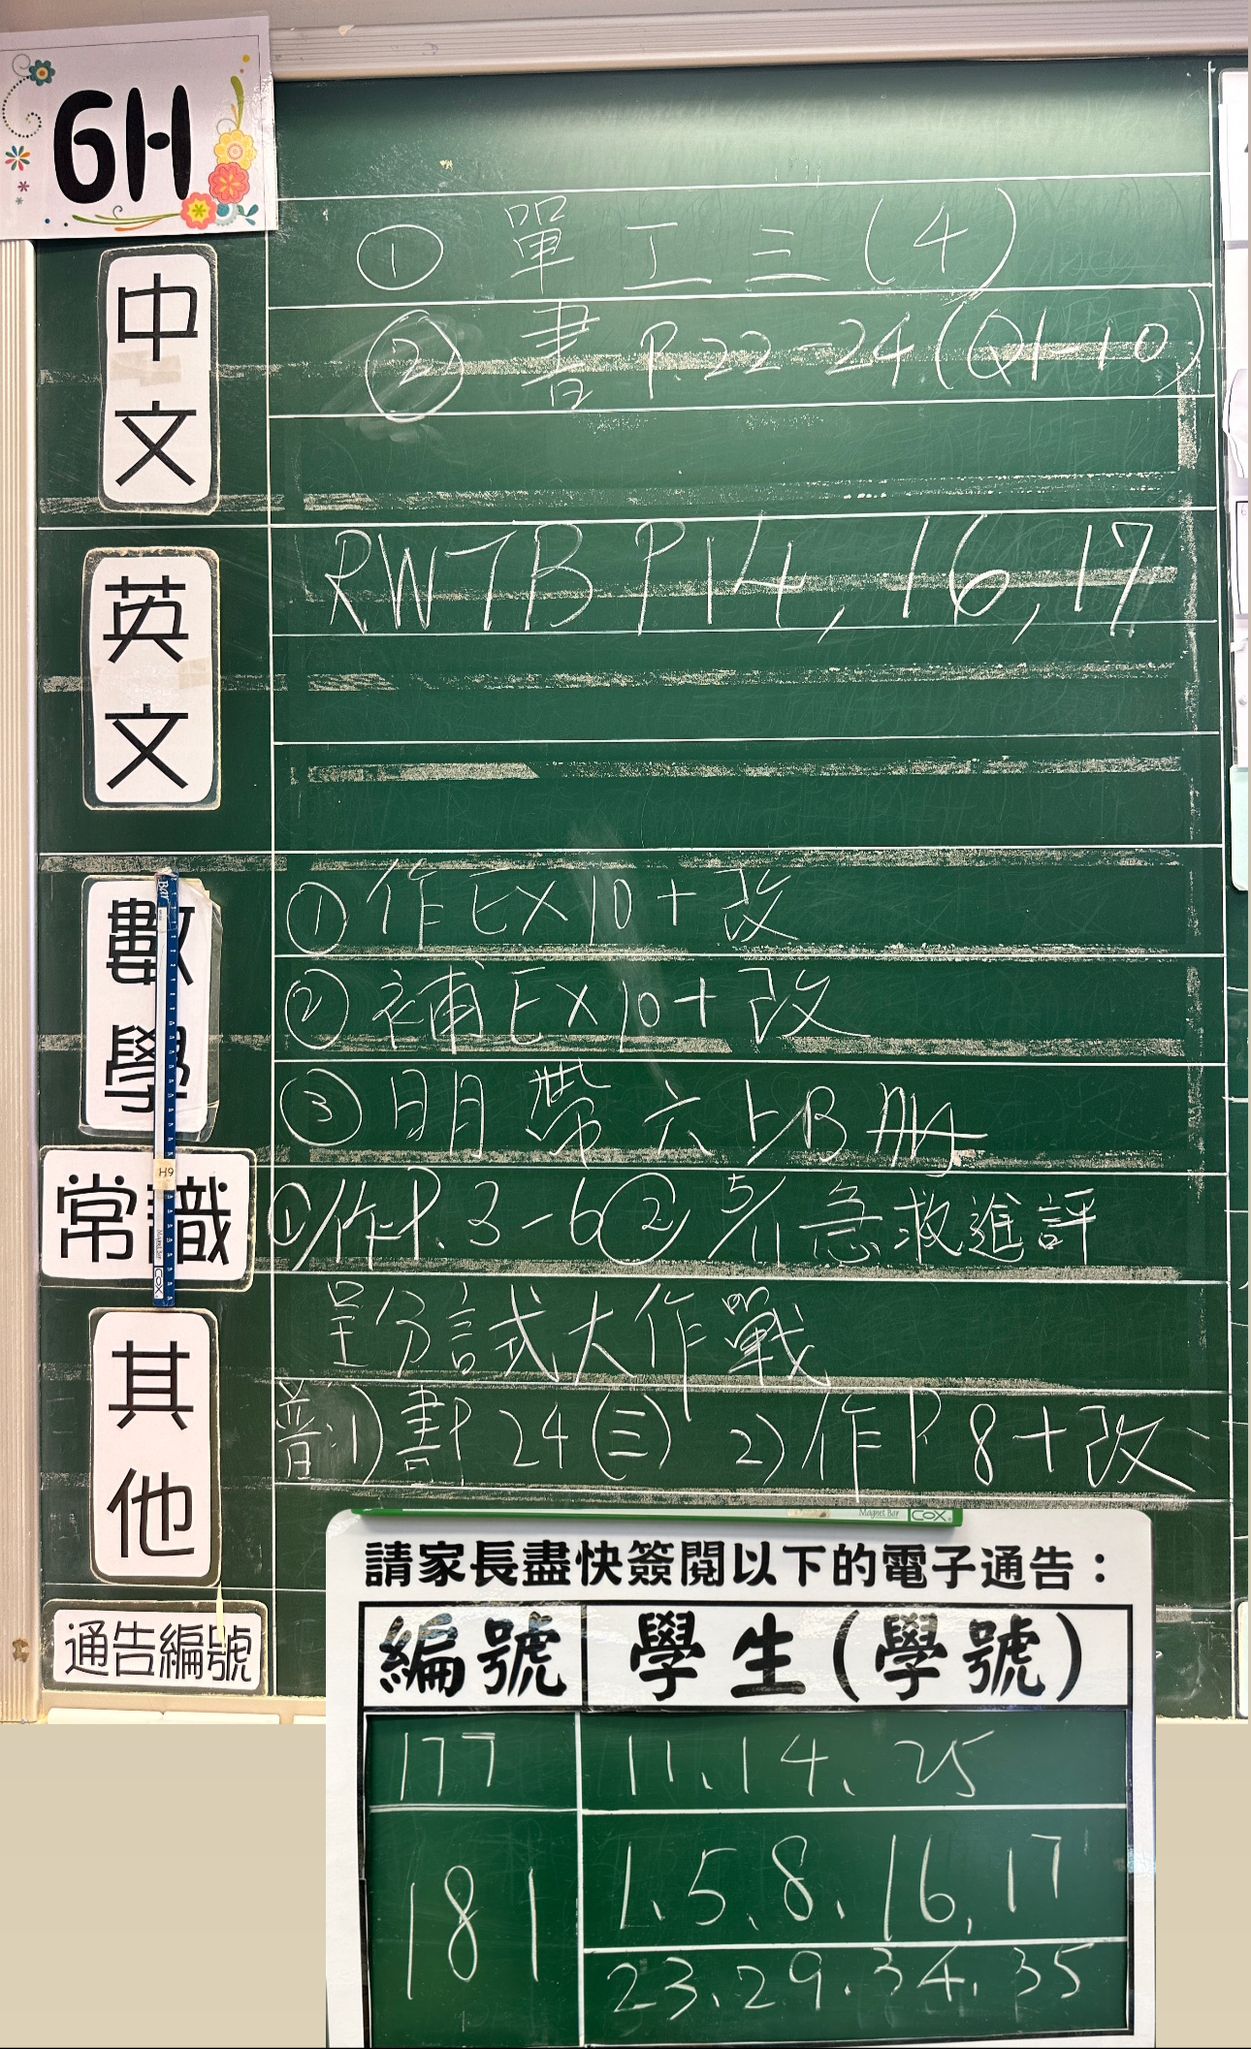 6H
中文
① 單工三(4)
② 書 P.22-24(Q1-10)
英文
RWTB P14, 16, 17
數學
① 作EX10+改
② 補EX10+改
③ 明帶六上B冊
H9
常識
① 作P.3-6 ② 5/11 急救進評
其他
呈分試大作戰
普:1) 書P24(三) 2) 作P8+改
通告編號
Magnet Bar COX
請家長盡快簽閱以下的電子通告：
編號 學生(學號)
177 11、14、25
181 1、5、8、16、17
23、29、34、35